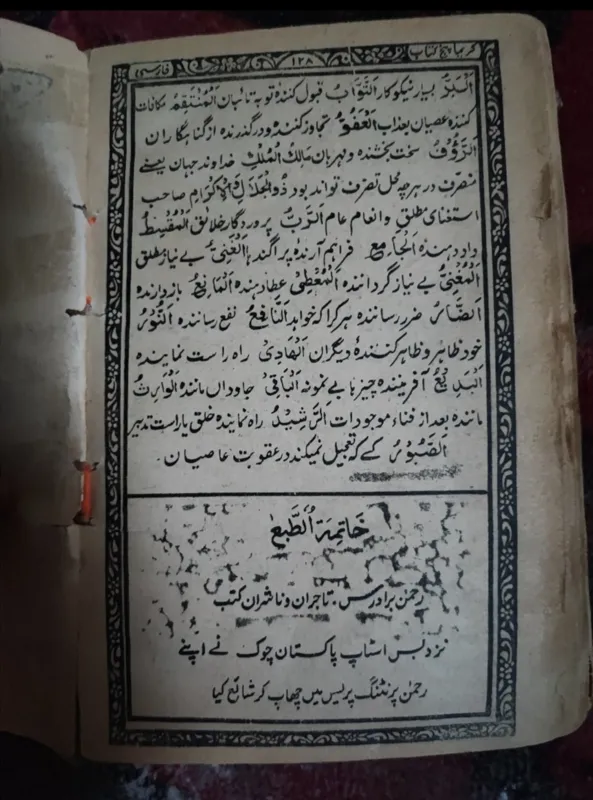 کریما پنج کتاب ۱۲۸ فارسی
اَلْبَرُّ بسیار نیکوکار اَلتَّوَّابُ قبول کنندهٔ توبه تائبان اَلْمُنْتَقِمُ مکافات
کننده عصیان بعذاب اَلْعَفُوُّ تجاوز کننده و درگذرنده از گناهگاران
اَلرَّؤُوْفُ سخت بخشنده و مهربان مَالِكُ الْمُلْكِ خداوند جهان یعنے
متصرف در هرچه محل تصرف تواند بود ذُوالْجَلَالِ وَالْاِكْرَامِ صاحب
استغنای مطلق وانعام عام اَلرَّبُّ پروردگار خلائق اَلْمُقْسِطُ
داد دهنده اَلْجَامِعُ فراهم آرنده پراگندہا اَلْغَنِیُّ بے نیاز مطلق
اَلْمُغْنِیُ بے نیاز گرداننده اَلْمُعْطِیُ عطا دهنده اَلْمَانِعُ بازدارنده
اَلضَّاسُّ ضرر رساننده هرکرا که خواهد اَلنَّافِعُ نفع رساننده اَلنُّوْرُ
خود ظاهر و ظاهر کنندهٔ دیگران اَلْهَادِیُ راه راست نماینده
اَلْبَدِیْعُ آفریننده چیزها بے نمونه اَلْبَاقِیُ جاوداں مانند اَلْوَارِثُ
مانند بعد از فناء موجودات اَلرَّشِیْدُ راه نماینده خلق یا راست تدبیر
اَلصَّبُوْرُ کسے که تعجیل نمیکند در عقوبت عاصیان۔
خَاتِمَةُ الطَّبْعِ
رحمٰن برادرس۔ تاجران و ناشران کتب
نزد بس اسٹاپ پاکستان چوک نے اپنے
رحمٰن پرنٹنگ پریس میں چھاپ کر شائع کیا